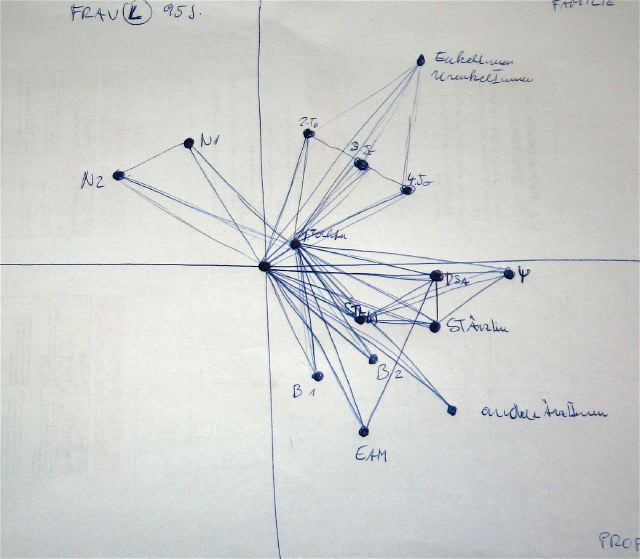 FRAU L 95 J.
FAMILIE
EnkelInnen
UrenkelInnen
2. To
N1
3. To
N2
4. To
1. Tochter
Ψ
DSA
ST Ärztin
B 2
B 1
andere ÄrztInnen
EAM
PROF